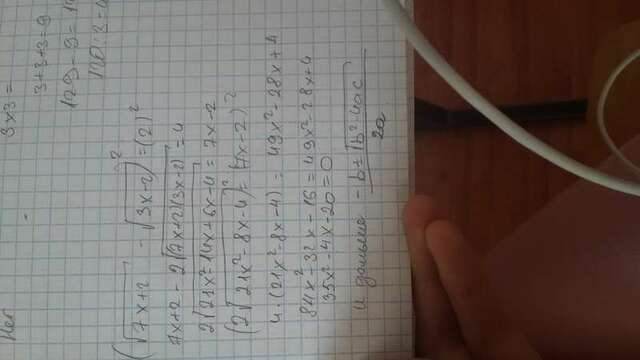 Нет
3×3=
3+3+3=9
129-9=1
120:2=
(√7x+2 - √3x-2)²=(2)²
7x+2-2√(7x+2)(3x-2)=4
2√21x²-14x+6x-4=7x-2
(2√21x²-8x-4)²=(7x-2)²
4·(21x²-8x-4)=49x²-28x+4
84x²-32x-16=49x²-28x+4
35x²-4x-20=0
и дальше -b±√b²-4ac
2a